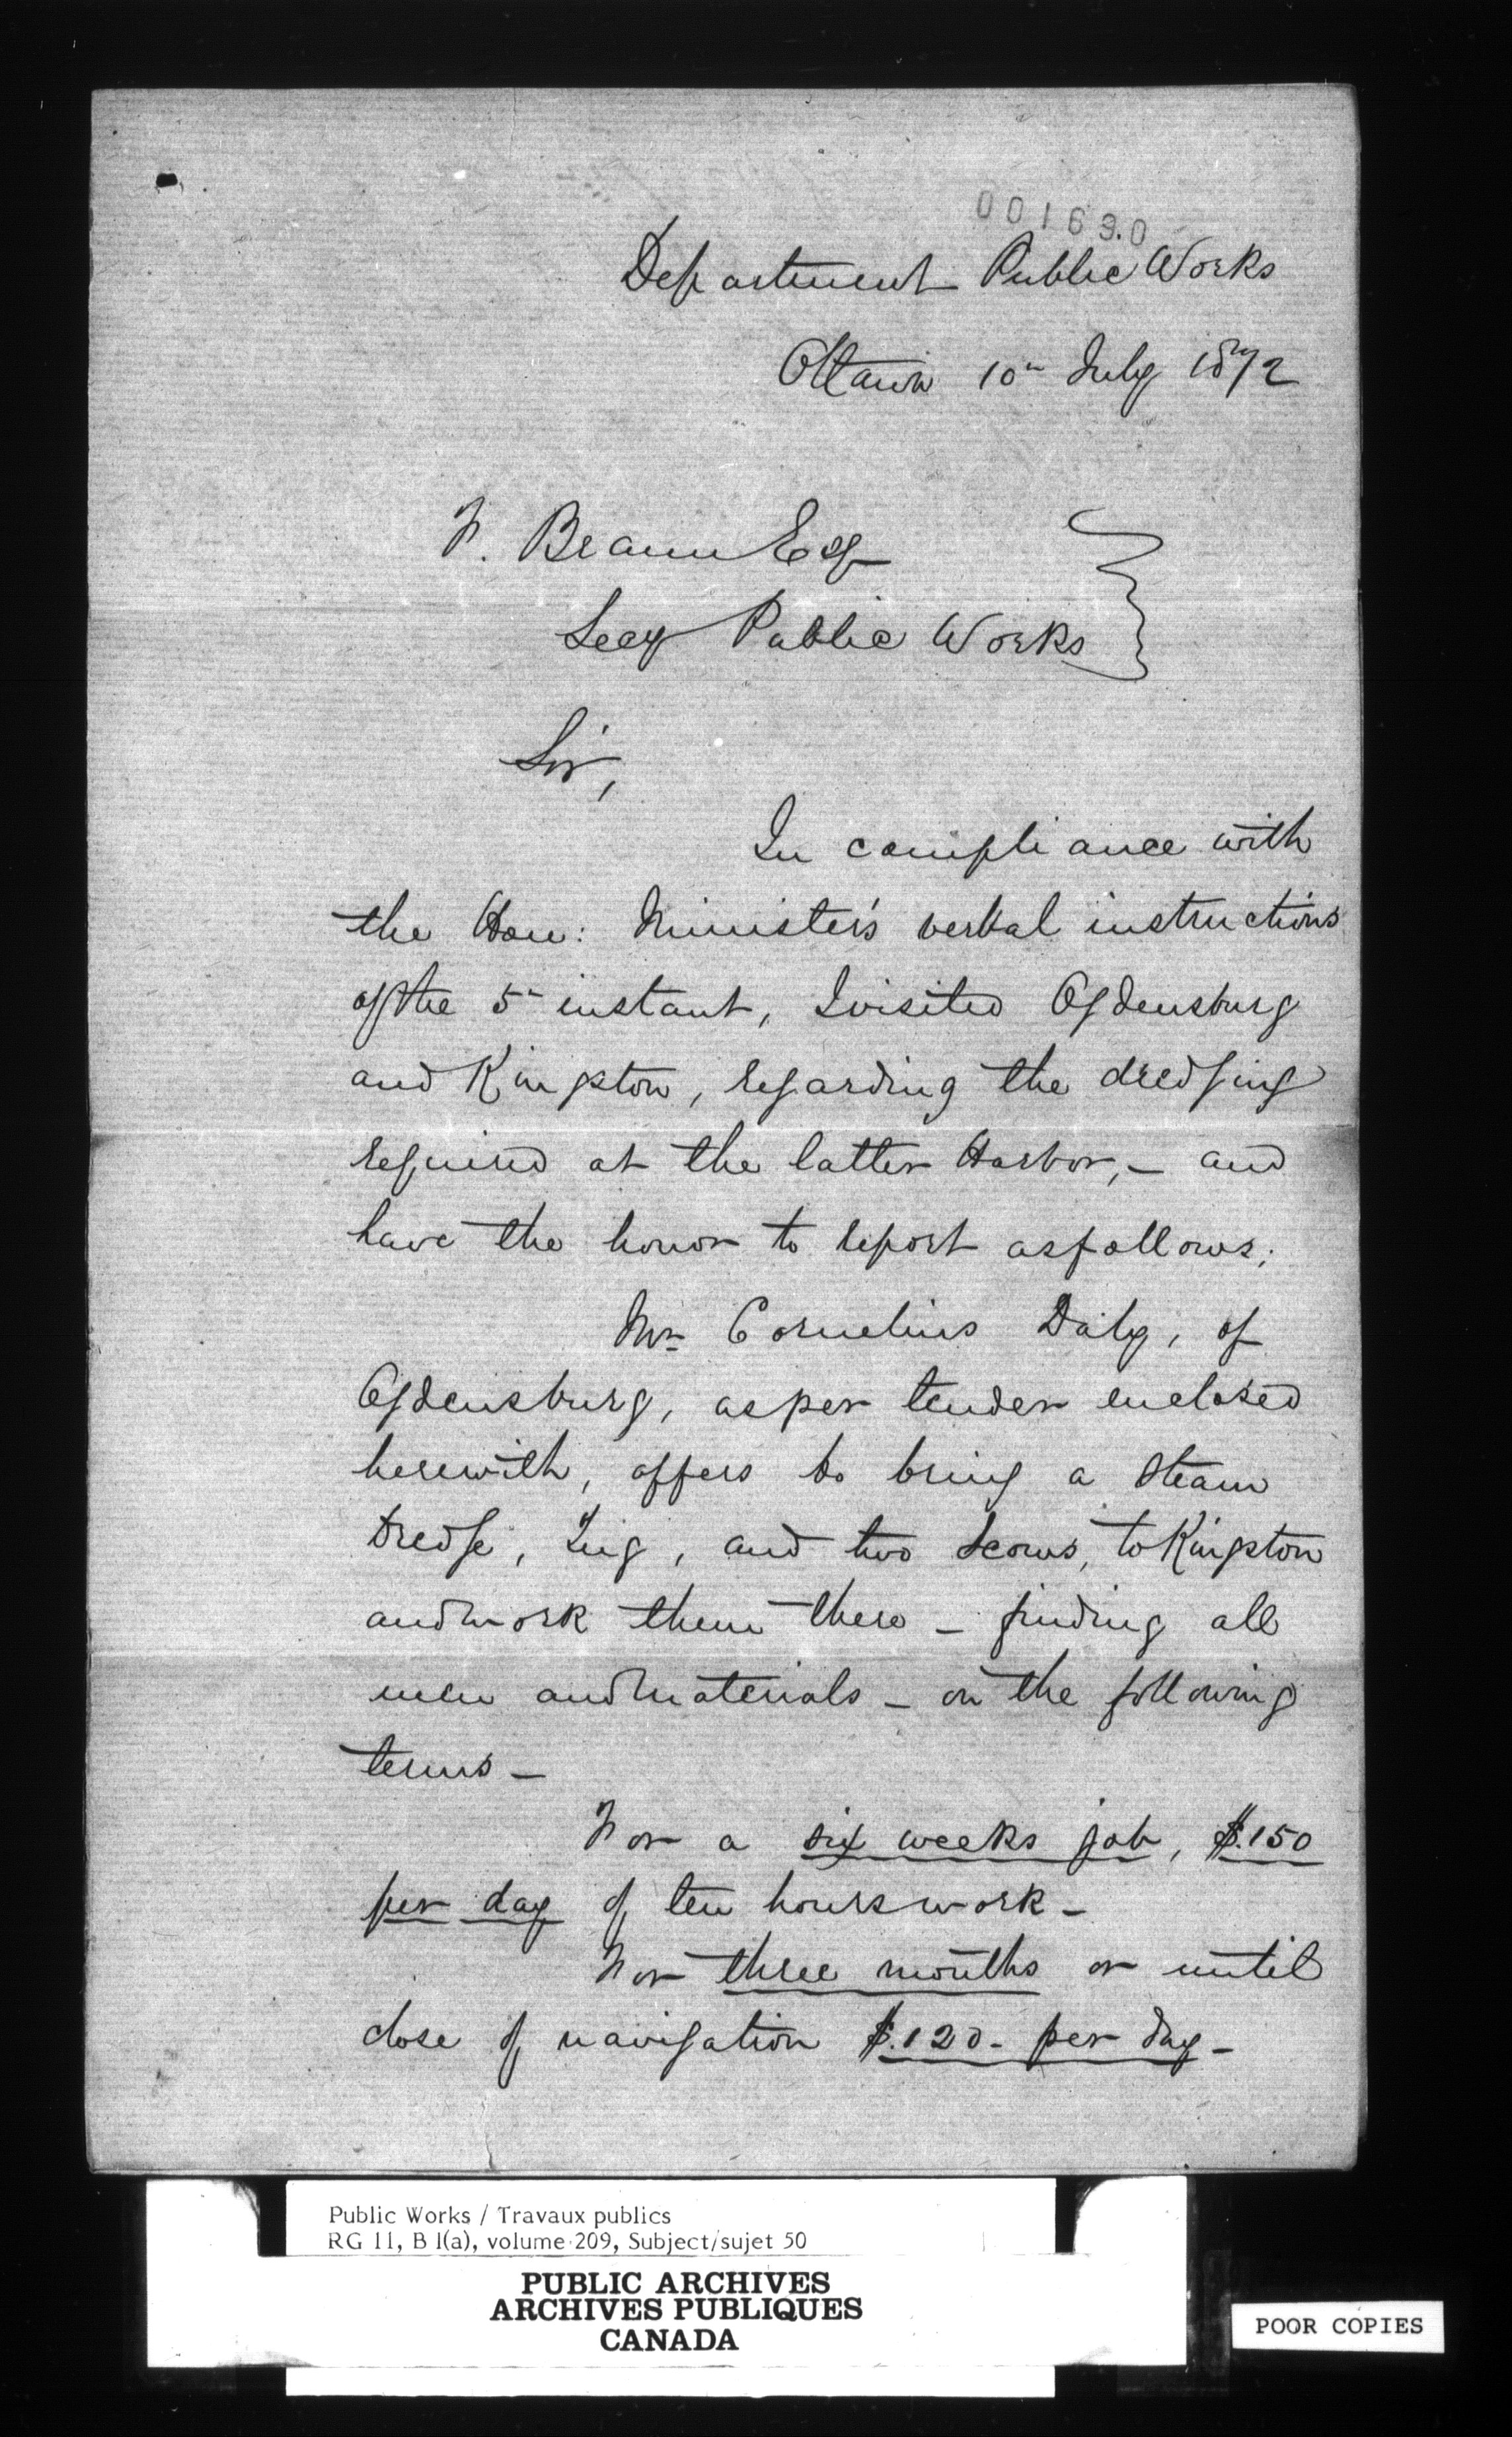 001690
Department Public Works
Ottawa 10th July 1872
F. Braun Esq
Secy Public Works
Sir,
In compliance with
the Hon: Minister's verbal instructions
of the 5th instant, I visited Ogdensburg
and Kingston, regarding the dredging
required at the latter Harbor, — and
have the honor to report as follows;
Mr Cornelius Daly, of
Ogdensburg, as per tender enclosed
herewith, offers to bring a steam
dredge, Tug, and two scows, to Kingston
and work them there — finding all
men and materials — on the following
terms —
For a six weeks job, $.150
per day of ten hours work —
For three months or until
close of navigation $.120 - per day —
Public Works / Travaux publics
RG 11, B 1(a), volume 209, Subject/sujet 50
PUBLIC ARCHIVES
ARCHIVES PUBLIQUES
CANADA
POOR COPIES